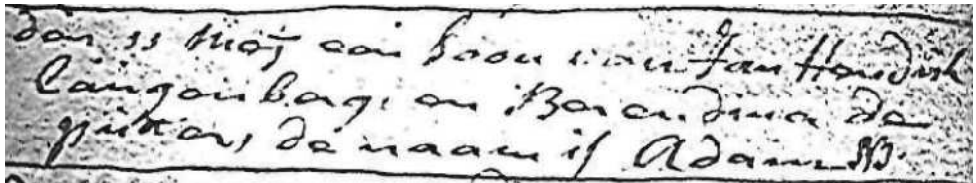 den 11 Meij een Soon van Jan Hendrik
Langenberg, en Berendina de
de naam is Adam